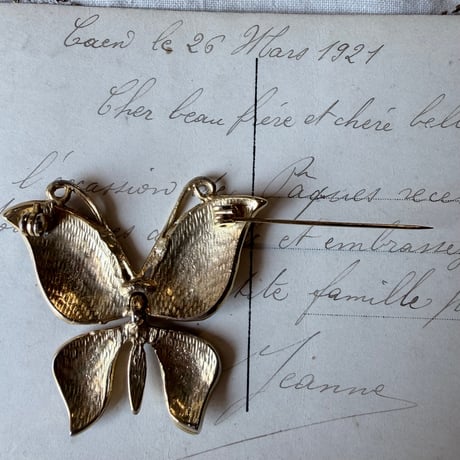 Caen le 26 Mars 1921
Cher beau frère et chère bel
l'occasion de Pâques rece
et embrasse
tite famille
Jeanne